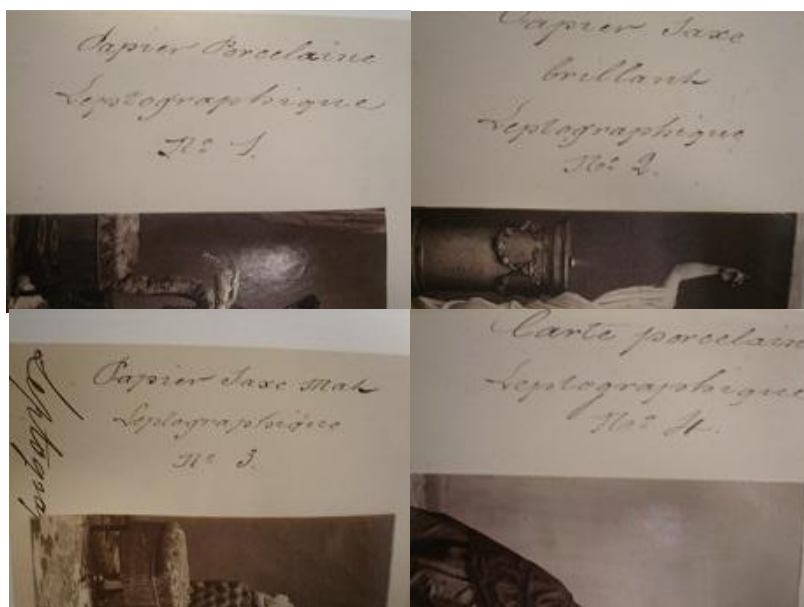 Papier Porcelaine
Leptographique
Nº 1.
Papier Saxe
brillant
Leptographique
Nº 2.
Papier Saxe Mat
Leptographique
Nº 3.
Leptograp
Carte porcelain
Leptographique
Nº 4.